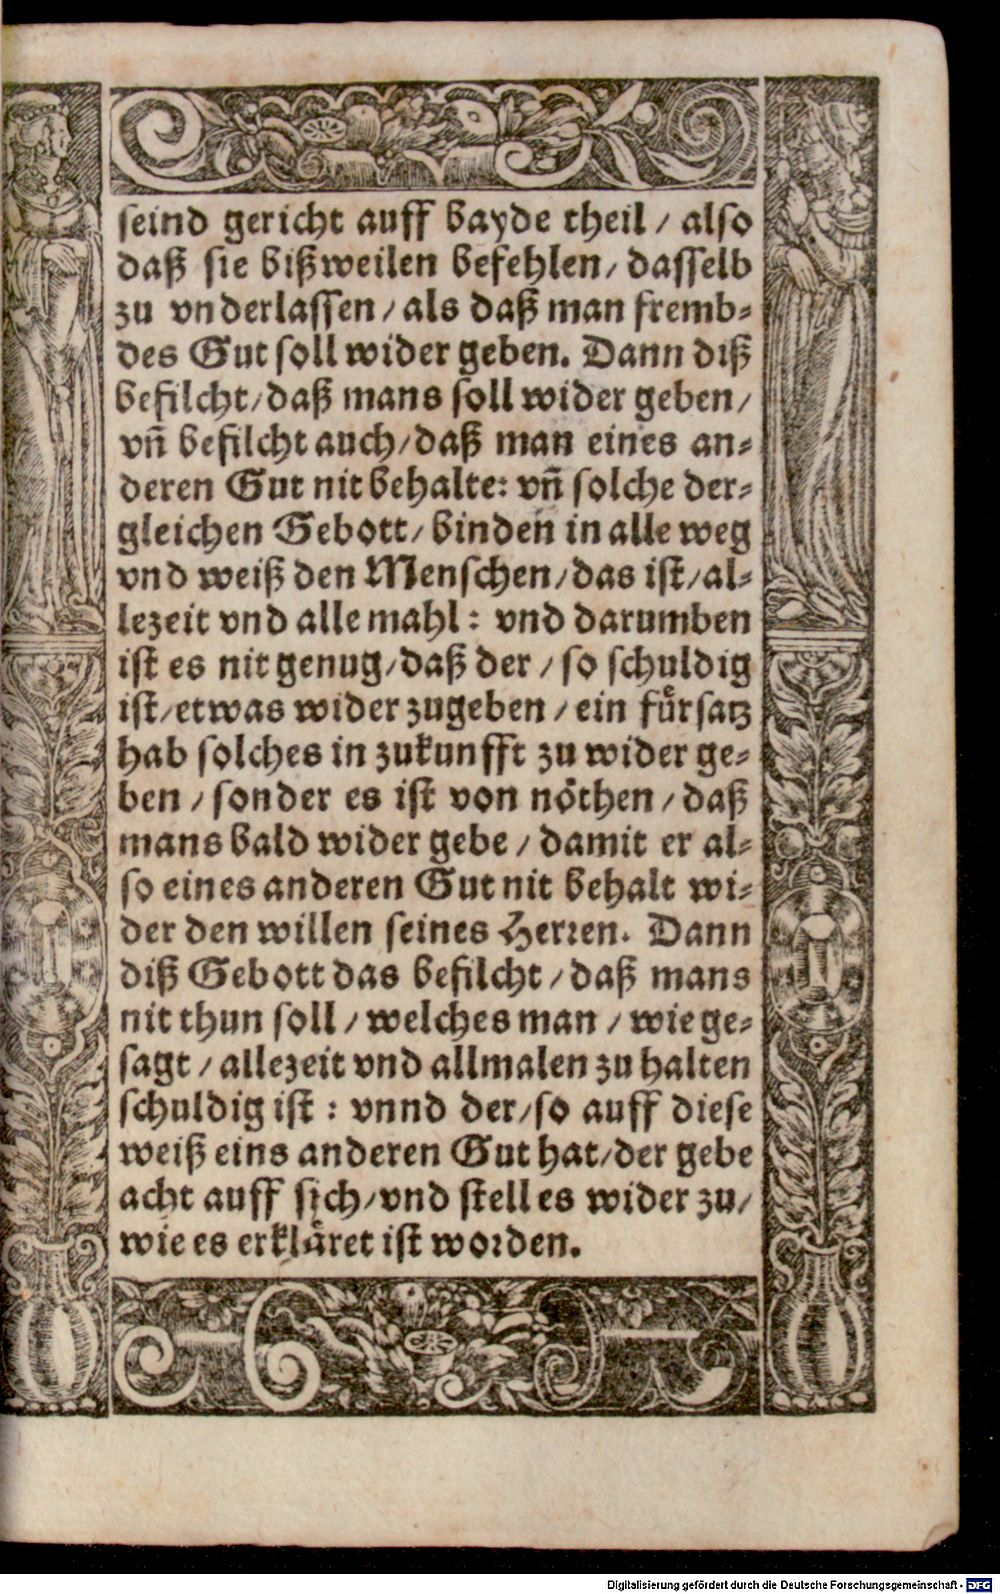 seind gericht auff bayde theil / also
daß sie bißweilen befehlen / dasselb
zu vnderlassen / als daß man fremb⸗
des Gut soll wider geben. Dann diß
befilcht / daß mans soll wider geben /
vñ befilcht auch / daß man eines an⸗
deren Gut nit behalte: vñ solche der⸗
gleichen Gebott / binden in alle weg
vnd weiß den Menschen / das ist / al⸗
lezeit vnd alle mahl: vnd darumben
ist es nit genug / daß der / so schuldig
ist / etwas wider zugeben / ein fuͤrsatz
hab solches in zukunfft zu wider ge⸗
ben / sonder es ist von noͤthen / daß
mans bald wider gebe / damit er al⸗
so eines anderen Gut nit behalt wi⸗
der den willen seines Herꝛen. Dann
diß Gebott das befilcht / daß mans
nit thun soll / welches man / wie ge⸗
sagt / allezeit vnd allmalen zu halten
schuldig ist: vnnd der / so auff diese
weiß eins anderen Gut hat / der gebe
acht auff sich / vnd stell es wider zu /
wie es erklaͤret ist woꝛden.
Digitalisierung gefördert durch die Deutsche Forschungsgemeinschaft - DFG